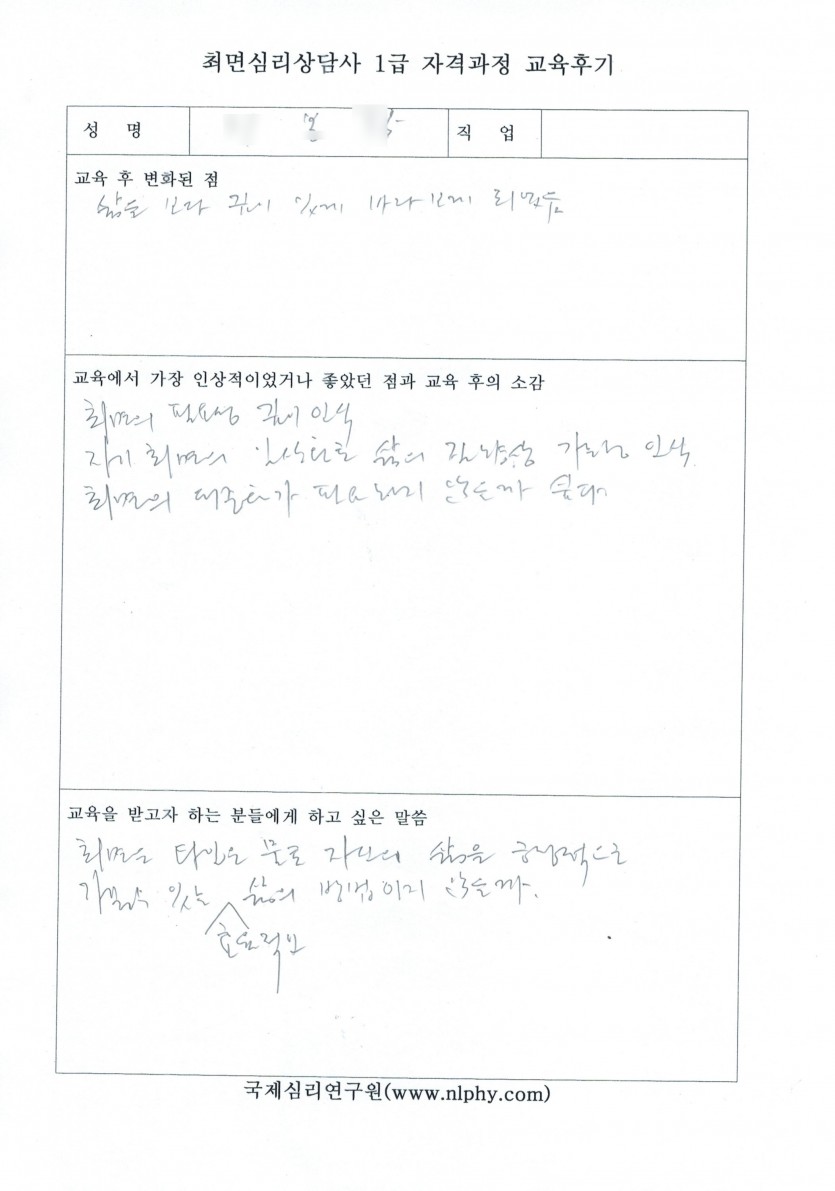 최면심리상담사 1급 자격과정 교육후기
성 명
직 업
교육 후 변화된 점
삶을 보다 깊이 있게 바라보게 되었음
교육에서 가장 인상적이었거나 좋았던 점과 교육 후의 소감
최면의 필요성 깊이 인식
자기 최면의 일상화로 삶의 긍정성 가능 인식
최면의 대중화가 필요하지 않을까 싶다.
교육을 받고자 하는 분들에게 하고 싶은 말씀
최면은 타인은 물론 자신의 삶을 긍정적으로
가질수 있는 삶의 방법이지 않을까.
효율적인
국제심리연구원(www.nlphy.com)